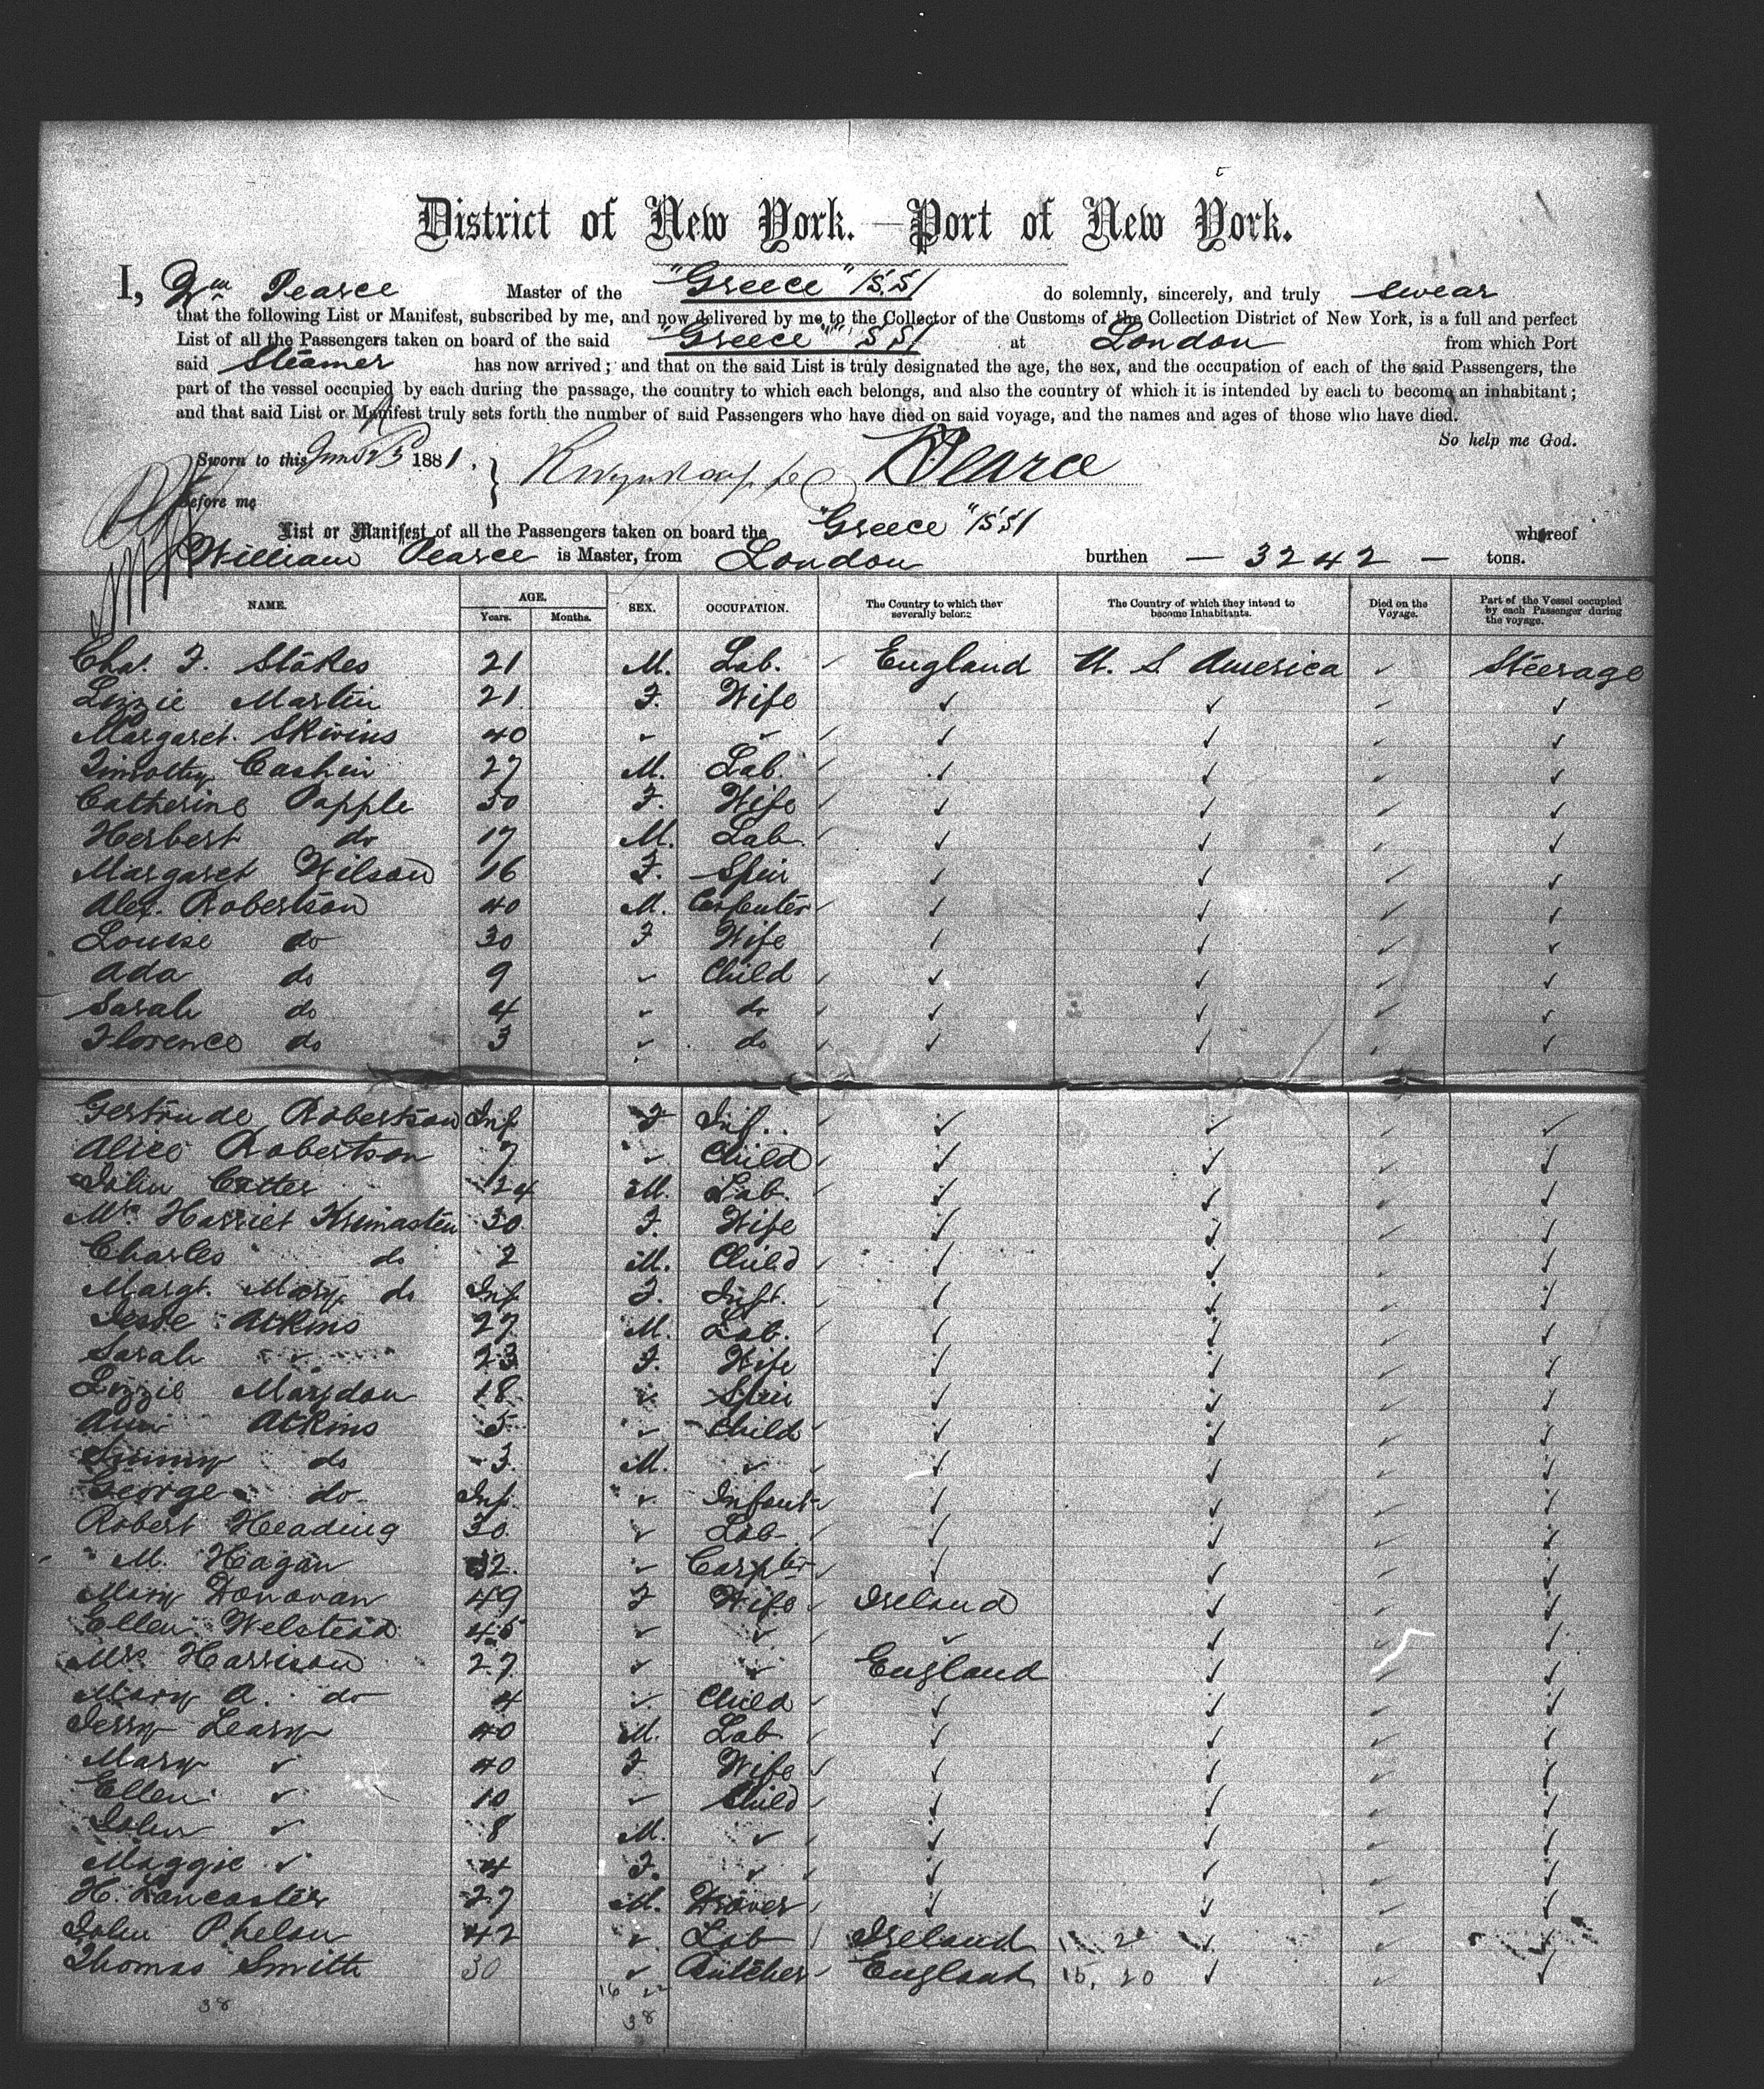 District of New York.—Port of New York.
I, Wm Pearce Master of the "Greece" /S.S/ do solemnly, sincerely, and truly swear
that the following List or Manifest, subscribed by me, and now delivered by me to the Collector of the Customs of the Collection District of New York, is a full and perfect
List of all the Passengers taken on board of the said "Greece" S.S/ at London from which Port
said Steamer has now arrived; and that on the said List is truly designated the age, the sex, and the occupation of each of the said Passengers, the
part of the vessel occupied by each during the passage, the country to which each belongs, and also the country of which it is intended by each to become an inhabitant;
and that said List or Manifest truly sets forth the number of said Passengers who have died on said voyage, and the names and ages of those who have died.
So help me God.
Sworn to this 1881, Pearce
Before me
List or Manifest of all the Passengers taken on board the "Greece" /S.S/ whereof
William Pearce is Master, from London burthen — 3242 — tons.
NAME. AGE. Years. Months. SEX. OCCUPATION. The Country to which they severally belong The Country of which they intend to become Inhabitants. Died on the Voyage. Part of the Vessel occupied by each Passenger during the voyage.
Chas. F. Stokes 21 M. Lab. ✓ England U. S America ✓ Steerage
Lizzie Martin 21 F. Wife ✓ ✓ ✓ ✓
Margaret 40 ✓ ✓ ✓ ✓ ✓ ✓ ✓
Timothy Cashin 27 M. Lab. ✓ ✓ ✓ ✓ ✓
Catherine Papple 50 F. Wife ✓ ✓ ✓ ✓ ✓
Herbert do 17 M. Lab. ✓ ✓ ✓ ✓ ✓
Margaret Wilson 16 F. Spin ✓ ✓ ✓ ✓
Alex. Robertson 40 M. Carpenter ✓ ✓ ✓ ✓ ✓
Louise do 30 F Wife ✓ ✓ ✓ ✓
Ada do 9 ✓ Child ✓ ✓ ✓ ✓ ✓
Sarah do 4 ✓ do ✓ ✓ ✓ ✓ ✓
Florence do 3 ✓ do ✓ ✓ ✓ ✓ ✓
Gertrude Robertson Inf F Inf. ✓ ✓ ✓ ✓ ✓
Alice Robertson 7 ✓ Child ✓ ✓ ✓ ✓ ✓
John Carter 24 M. Lab. ✓ ✓ ✓ ✓ ✓
Mrs Harriet 30 F. Wife ✓ ✓ ✓ ✓
Charles do 2 M. Child ✓ ✓ ✓ ✓ ✓
Margt. Mary do Inf F. Inft. ✓ ✓ ✓ ✓ ✓
Jesse Atkins 27 M. Lab. ✓ ✓ ✓ ✓ ✓
Sarah ✓ 23 F. Wife ✓ ✓ ✓ ✓
Lizzie 18 ✓ Spin ✓ ✓ ✓ ✓ ✓
Atkins 5 ✓ Child ✓ ✓ ✓ ✓ ✓
do 3 M. ✓ ✓ ✓ ✓ ✓ ✓
George do Inf. ✓ Infant ✓ ✓ ✓ ✓ ✓
Robert Heading 30 ✓ Lab ✓ ✓ ✓ ✓ ✓
M. Hagan 32. ✓ Carpter ✓ ✓ ✓ ✓ ✓
Mary Donovan 49 F Wife ✓ Ireland ✓ ✓ ✓
Ellen Welstead 45 ✓ ✓ ✓ ✓ ✓ ✓ ✓
Mrs Harrison 27 ✓ ✓ England ✓ ✓ ✓
Mary A. do 4 ✓ Child ✓ ✓ ✓ ✓ ✓
Jerry Leary 40 M. Lab ✓ ✓ ✓ ✓ ✓
Mary ✓ 40 F Wife ✓ ✓ ✓ ✓ ✓
Ellen ✓ 10 ✓ Child ✓ ✓ ✓ ✓ ✓
John ✓ 8 M. ✓ ✓ ✓ ✓ ✓ ✓
Maggie ✓ 4 F. ✓ ✓ ✓ ✓ ✓ ✓
H. Lancaster 27 M. Drover ✓ ✓ ✓ ✓ ✓
John Phelan 42 ✓ Lab ✓ Ireland ✓ ✓ ✓
Thomas Smith 30 ✓ Butcher ✓ England 15, 20 ✓ ✓ ✓
16 22
38 38